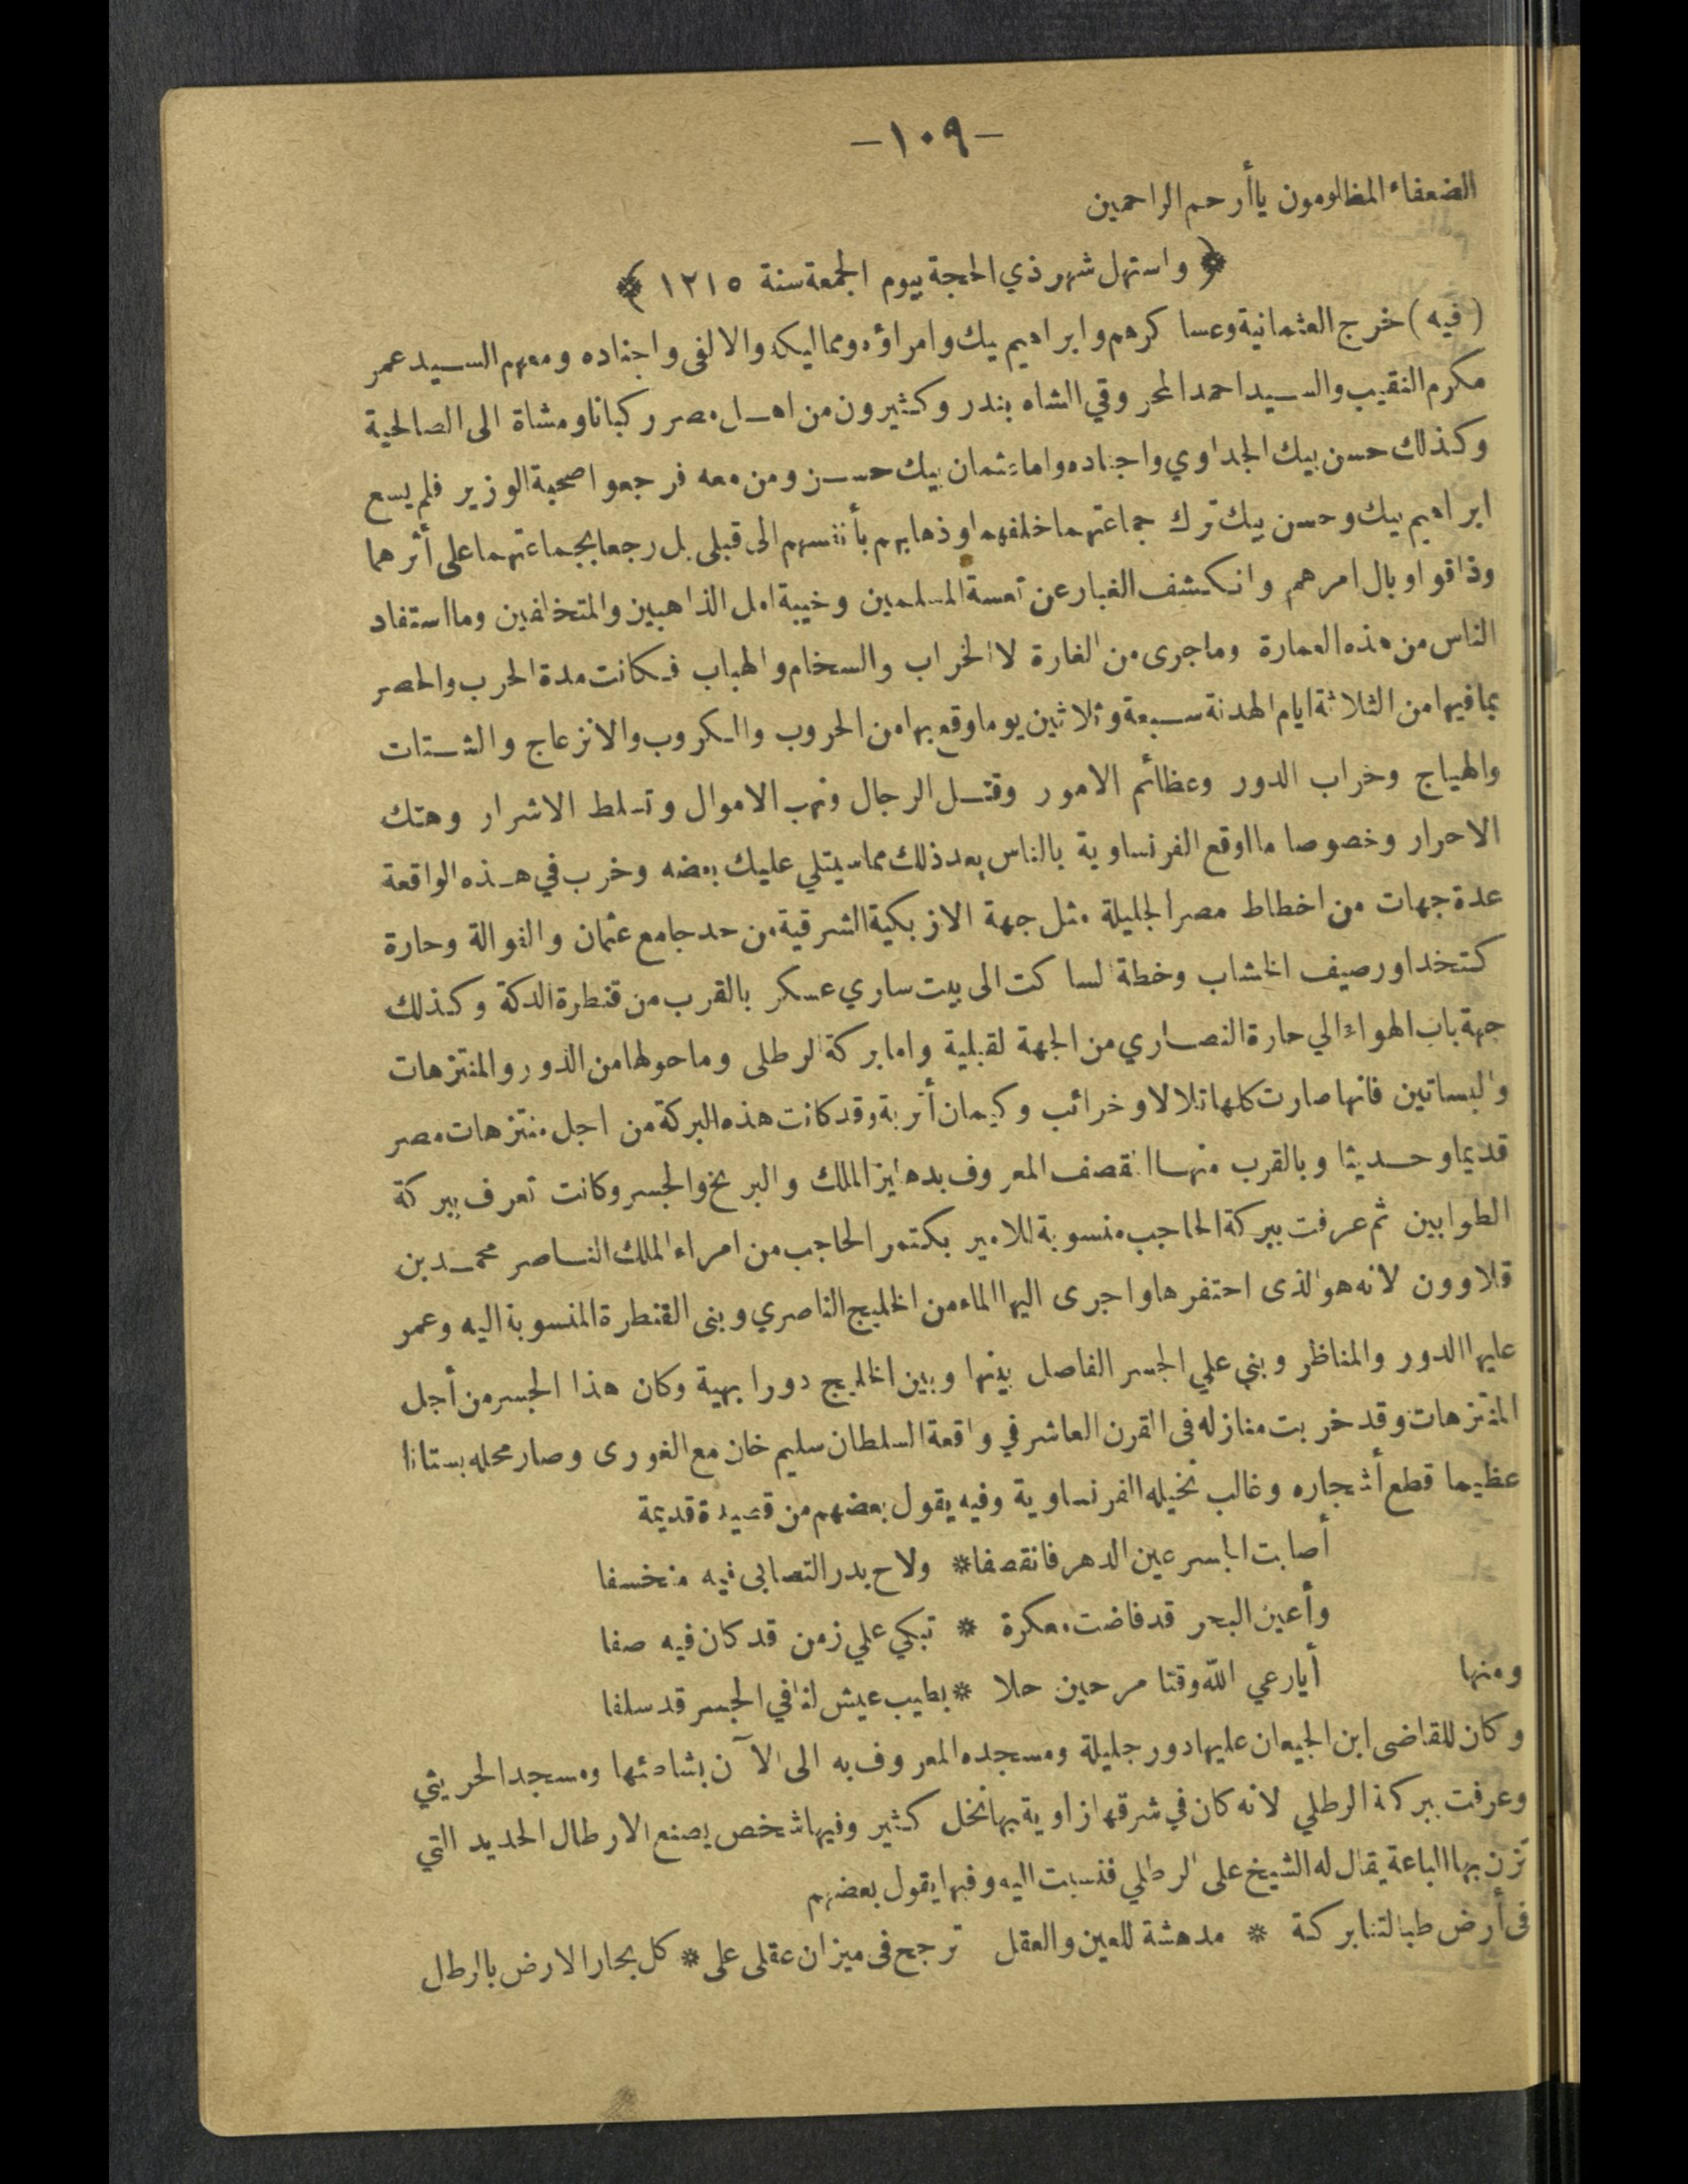 -١٠٩-
الضعفاء المظلومون ياأرحم الراحمين
﴿ واستهل شهر ذي الحجة بيوم الجمعة سنة ١٢١٥ ﴾
(فيه) خرج العثمانية وعساكرهم وابراهيم بيك وامراؤه ومماليكه والالفى واجناده ومعهم السيد عمر
مكرم النقيب والسيد احمد المحروقي الشاه بندر وكثيرون من اهل مصر ركبانا ومشاة الى الصالحية
وكذلك حسن بيك الجداوي واجناده واما عثمان بيك حسن ومن معه فرجعوا صحبة الوزير فلم يسع
ابراهيم بيك وحسن بيك ترك جماعتهما خلفهما وذهابهم بأنفسهم الى قبلى بل رجعا بجماعتهما على أثرهما
وذاقوا وبال امرهم وانكشف الغبار عن تعسة المسلمين وخيبة امل الذاهبين والمتخلفين وما استفاد
الناس من هذه العمارة وما جرى من الغارة الا الخراب والسخام والهباب فكانت مدة الحرب والحصر
بما فيها من الثلاثة ايام الهدنة سبعة وثلاثين يوما وقع بها من الحروب والكروب والانزعاج والشتات
والهياج وخراب الدور وعظائم الامور وقتل الرجال ونهب الاموال وتسلط الاشرار وهتك
الاحرار وخصوصا ما اوقع الفرنساوية بالناس بعد ذلك مما سيتلي عليك بعضه وخرب في هذه الواقعة
عدة جهات من اخطاط مصر الجليلة مثل جهة الازبكية الشرقية من حد جامع عثمان والفوالة وحارة
كتخدا ورصيف الخشاب وخطة الساكت الى بيت ساري عسكر بالقرب من قنطرة الدكة وكذلك
جهة باب الهواء الي حارة النصاري من الجهة القبلية واما بركة الرطلى وما حولها من الدور والمنتزهات
والبساتين فانها صارت كلها تلالا وخرائب وكيمان أتربة وقد كانت هذه البركة من اجل منتزهات مصر
قديما وحديثا وبالقرب منها المقصف المعروف بدهليز الملك والبربخ والجسر وكانت تعرف ببركة
الطوابين ثم عرفت ببركة الحاجب منسوبة للامير بكتمر الحاجب من امراء الملك الناصر محمد بن
قلاوون لانه هو الذى احتفرها واجرى اليها الماء من الخليج الناصري وبنى القنطرة المنسوبة اليه وعمر
عليها الدور والمناظر وبني علي الجسر الفاصل بينها وبين الخليج دورا بهية وكان هذا الجسر من أجل
المنتزهات وقد خربت منازله فى القرن العاشر في واقعة السلطان سليم خان مع الغورى وصار محله بستانا
عظيما قطع أشجاره وغالب نخيله الفرنساوية وفيه يقول بعضهم من قصيدة قديمة
أصابت الجسر عين الدهر فانقصفا * ولاح بدر التصابى فيه منخسفا
وأعين البحر قد فاضت معكرة * تبكي علي زمن قد كان فيه صفا
ومنها أيارعي الله وقتا مر حين حلا * بطيب عيش لنا في الجسر قد سلفا
وكان للقاضى ابن الجيعان عليها دور جليلة ومسجده المعروف به الى الآن بشاطئها ومسجد الحريثي
وعرفت ببركة الرطلي لانه كان في شرقها زاوية بها نخل كثير وفيها شخص يصنع الارطال الحديد التي
تزن بها الباعة يقال له الشيخ على الرطلي فنسبت اليه وفيها يقول بعضهم
فى أرض طبالتنا بركة * مدهشة للعين والعقل ترجح فى ميزان عقلى على * كل بحار الارض بالرطل